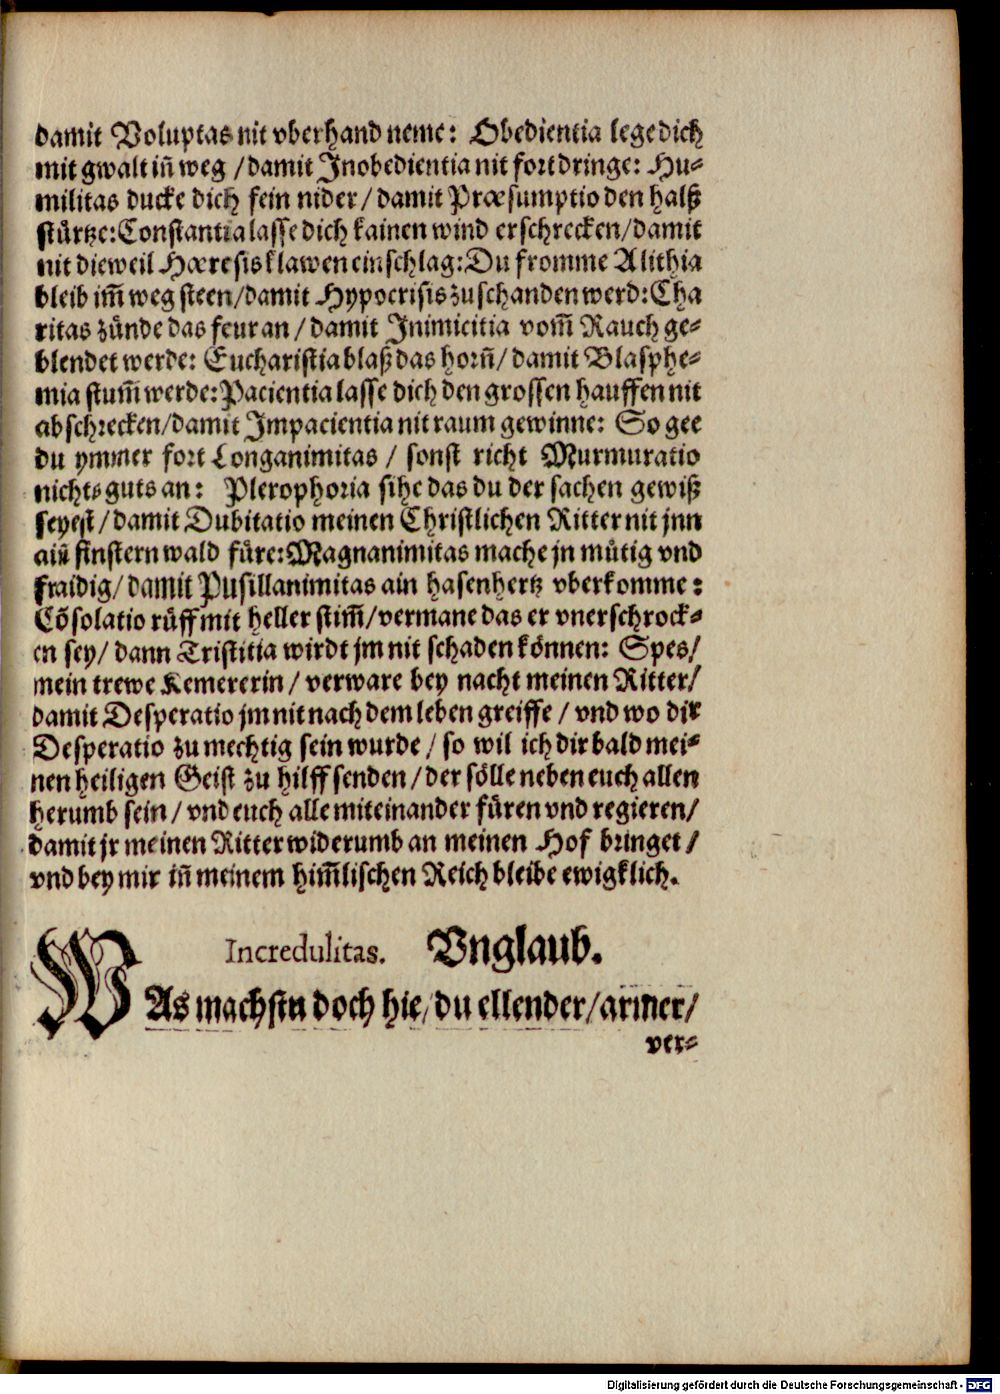 damit Voluptas nit vberhand neme: Obedientia lege dich
mit gwalt iñ weg / damit Inobedientia nit fort dringe: Hu-
militas ducke dich fein nider / damit Præsumptio den halß
stürtze: Constantia lasse dich kainen wind erschrecken/damit
nit dieweil Hæresis klawen einschlag: Du fromme Alithia
bleib im̃ weg steen/damit Hypocrisis zuschanden werd: Cha
ritas zünde das feur an / damit Inimicitia vom̃ Rauch ge-
blendet werde: Eucharistia blaß das horñ/ damit Blasphe-
mia stum̃ werde: Pacientia lasse dich den grossen hauffen nit
abschrecken/damit Impacientia nit raum gewinne: So gee
du ymmer fort Longanimitas / sonst richt Murmuratio
nichts guts an: Plerophoria sihe das du der sachen gewiß
seyest / damit Dubitatio meinen Christlichen Ritter nit jnn
aiñ finstern wald füre: Magnanimitas mache jn mütig vnd
fraidig/ damit Pusillanimitas ain hasenhertz vberkomme:
Cõsolatio rüff mit heller stim̃/ vermane das er vnerschrock-
en sey/ dann Tristitia wirdt jm nit schaden können: Spes/
mein trewe Kemererin / verware bey nacht meinen Ritter/
damit Desperatio jm nit nach dem leben greiffe / vnd wo dir
Desperatio zu mechtig sein wurde / so wil ich dir bald mei-
nen heiligen Geist zu hilff senden / der sölle neben euch allen
herumb sein / vnd euch alle miteinander füren vnd regieren/
damit jr meinen Ritter widerumb an meinen Hof bringet /
vnd bey mir iñ meinem him̃lischen Reich bleibe ewigklich.
Incredulitas. Vnglaub.
WAs machstu doch hie/ du ellender/ armer/
ver-
Digitalisierung gefördert durch die Deutsche Forschungsgemeinschaft - DFG